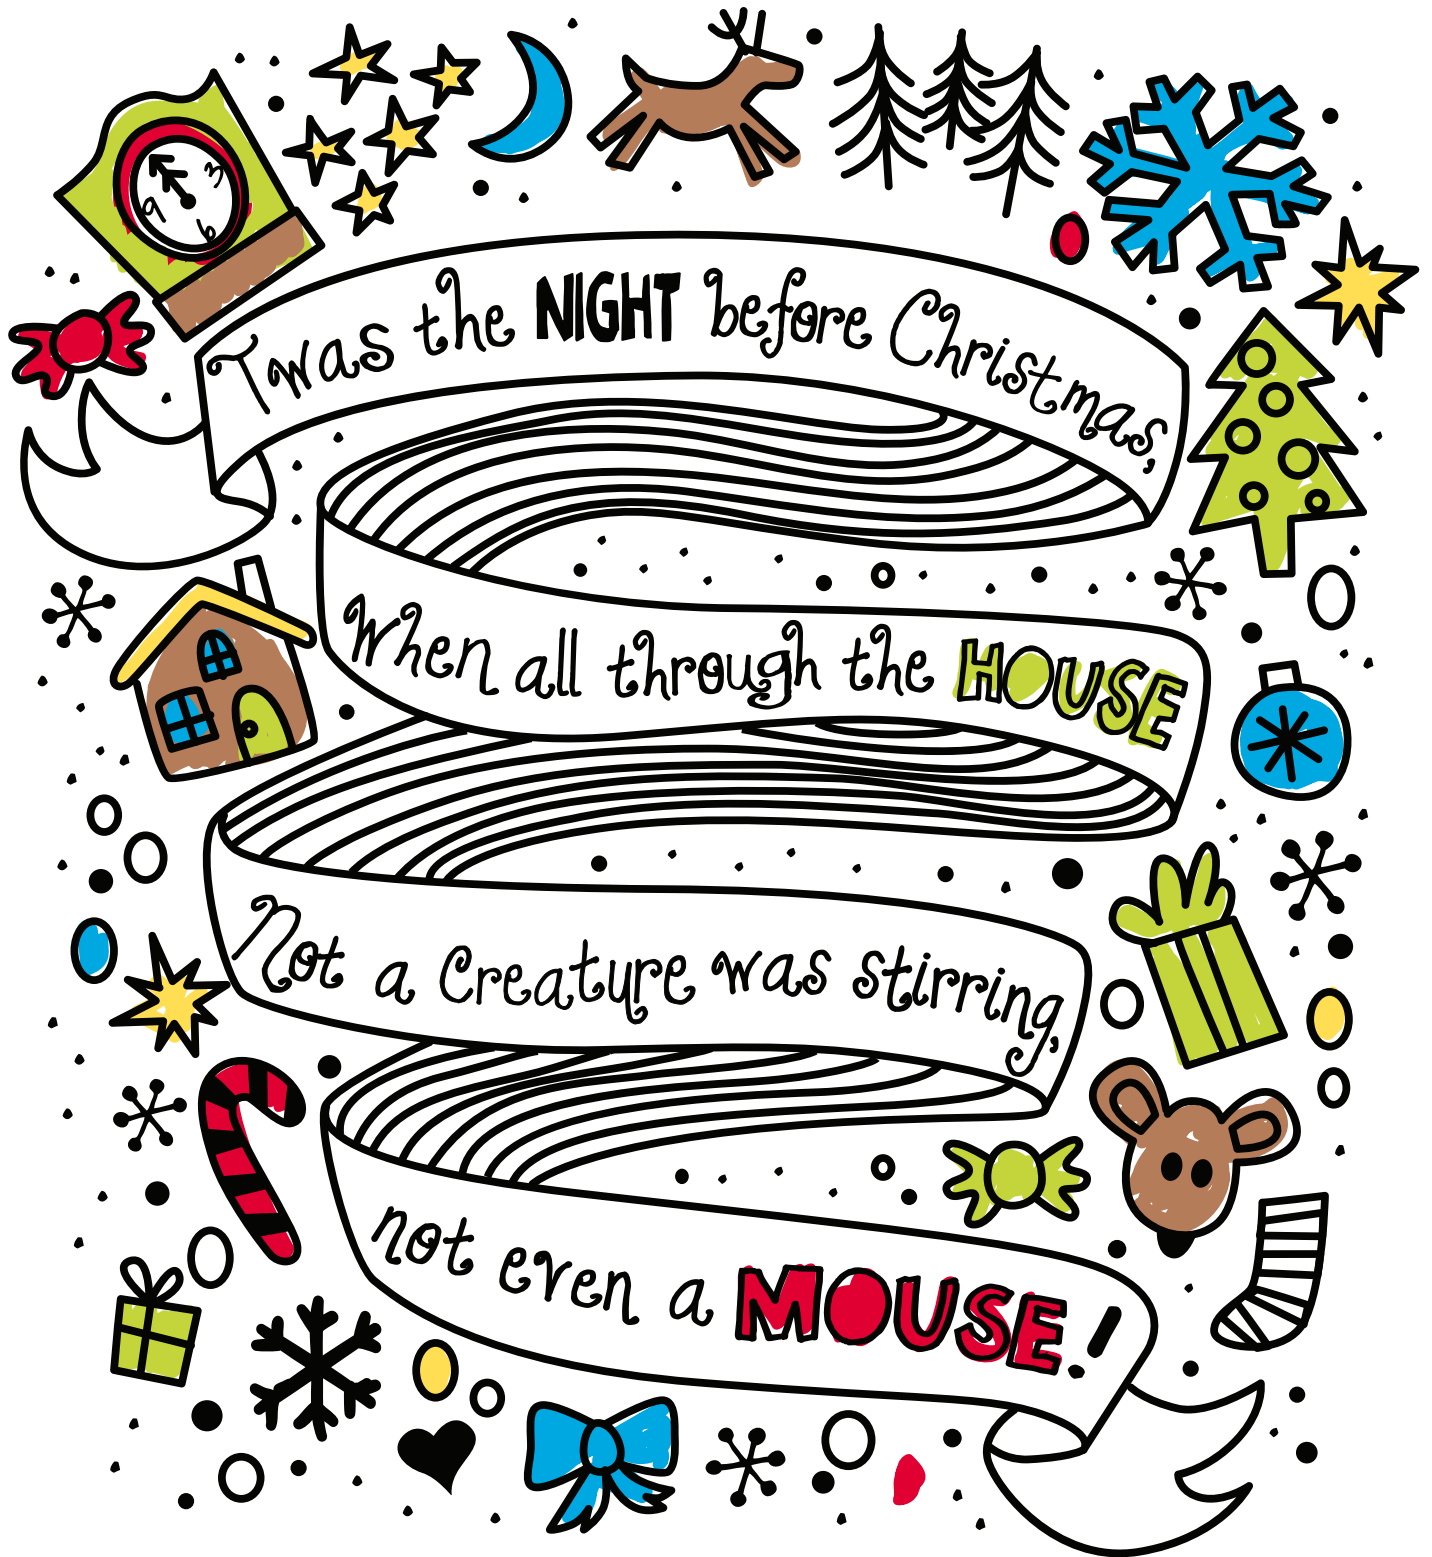 3
6
9
Twas the NIGHT before Christmas,
When all through the HOUSE
Not a Creature was stirring,
not even a MOUSE!